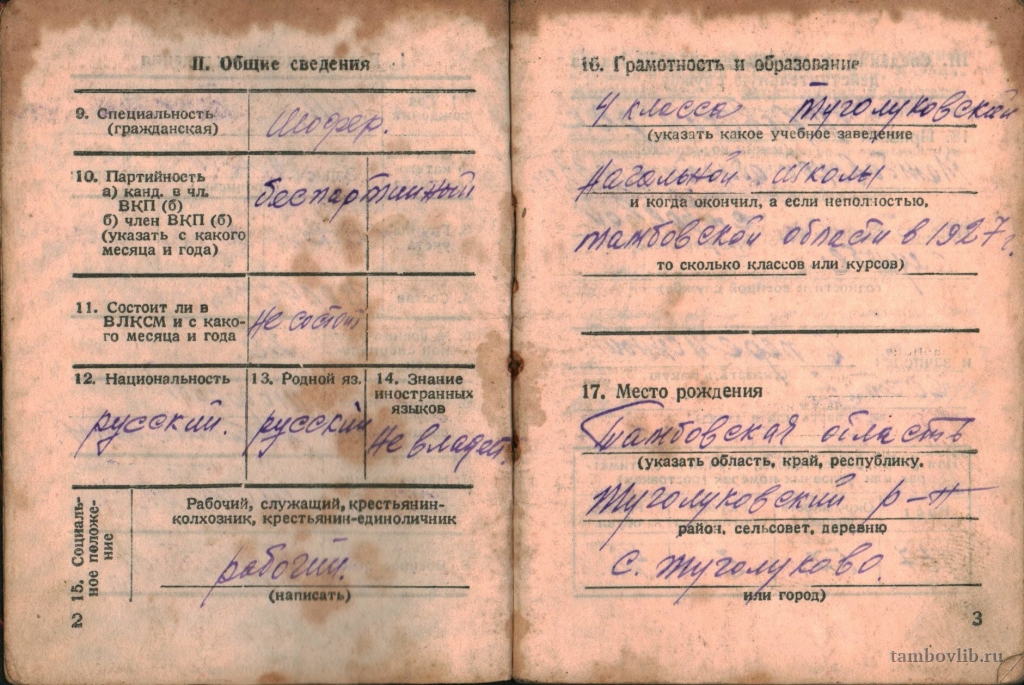 II. Общие сведения
9. Специальность
(гражданская)
Шофер.
10. Партийность
а) канд. в чл.
ВКП (б)
б) член ВКП (б)
(указать с какого
месяца и года)
беспартийный
11. Состоит ли в
ВЛКСМ и с како-
го месяца и года
Не состоит
12. Национальность
русский.
13. Родной яз.
русский
14. Знание
иностранных
языков
Не владеет.
15. Социаль-
ное положе-
ние
Рабочий, служащий, крестьянин-
колхозник, крестьянин-единоличник
рабочий.
(написать)
2
16. Грамотность и образование
4 класса Туголуковский
(указать какое учебное заведение
начальной школы
и когда окончил, а если неполностью,
тамбовской области в 1927 г.
то сколько классов или курсов)
17. Место рождения
Тамбовская область
(указать область, край, республику,
Туголуковский р-н
район, сельсовет, деревню
с. Туголуково.
или город)
3
tambovlib.ru